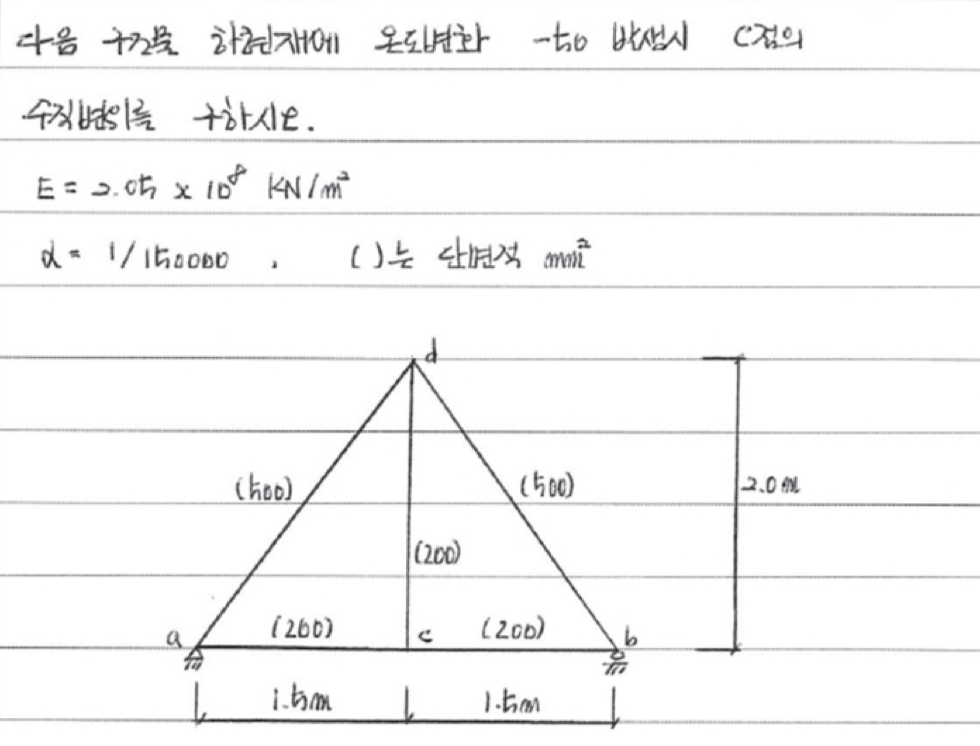 다음 구조물 하현재에 온도변화 -50 발생시 C점의
수직변위를 구하시오.
E = 2.05 x 10⁸ KN/m²
α = 1/150000 , ( )는 단면적 mm²
d
(500) (500) 2.0m
(200)
a (200) c (200) b
1.5m 1.5m